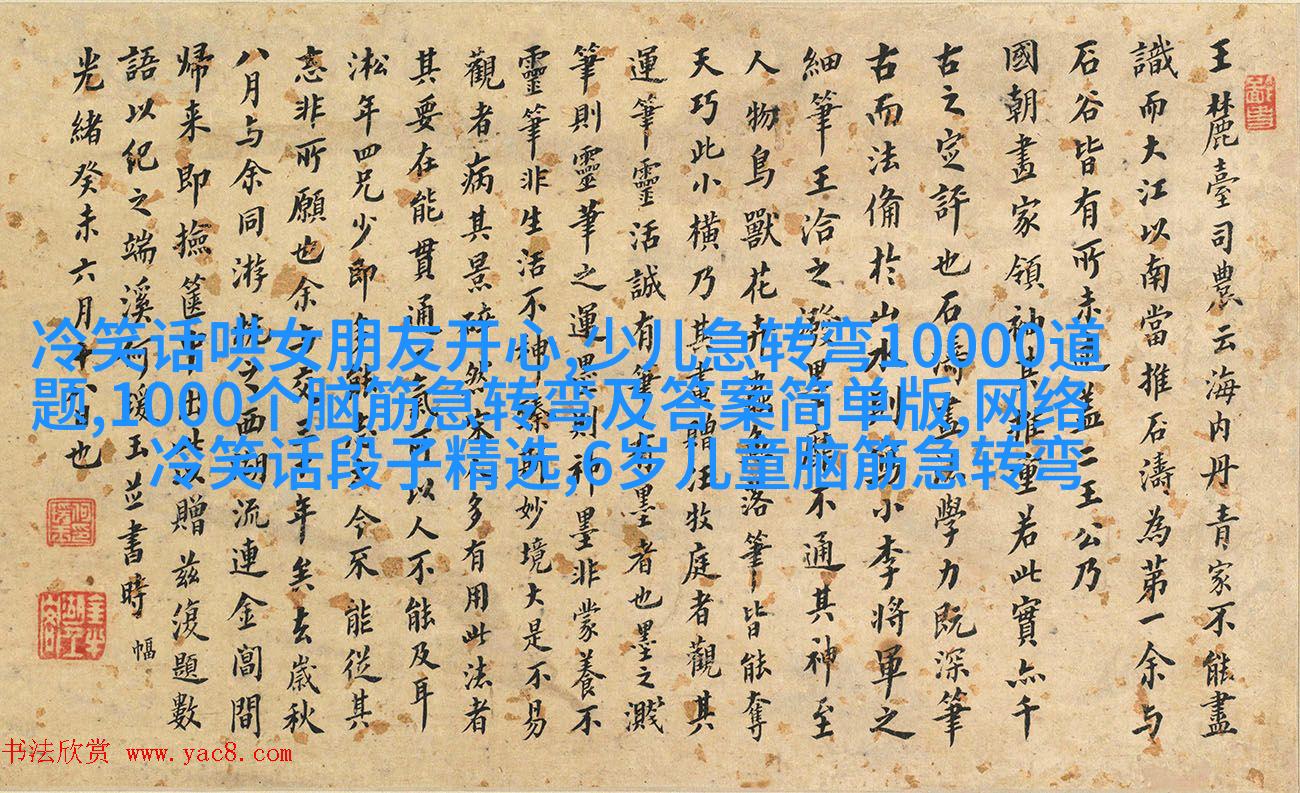 王麓臺司農云海内丹青家不能盡
識而大江以南當推石濤為第一余与
石谷皆有所未盖二王公乃
國朝畫家領袖其推重若此實千
古之定評也石濤學力既深筆
古而法備於山水則師小李將軍之
細筆王洽之潑墨靡不通其神至
人物鳥獸花卉落筆皆能奪
天巧此小橫乃其畫贈汪牧庭者觀其
運筆靈活誠有筆有墨者也墨之濺
筆則靈筆之運墨則神墨非蒙養不
靈筆非生活不神臻斯妙境大是不易
觀者病其景碎然宋多有用此法者
其要在能貫通一氣所以人不能及耳
淞年四兄少即今不能從其
志非所願也余交年矣去歲秋
八月与余同游杭之西湖流連金閶間
歸来即撿篋中以贈兹復題數
語以紀之端溪何瑗玉並書時 幅
光緒癸未六月十八日也
冷笑话哄女朋友开心,少儿急转弯10000道
题,1000个脑筋急转弯及答案简单版,网络
冷笑话段子精选,6岁儿童脑筋急转弯
书法欣赏 www.yac8.com